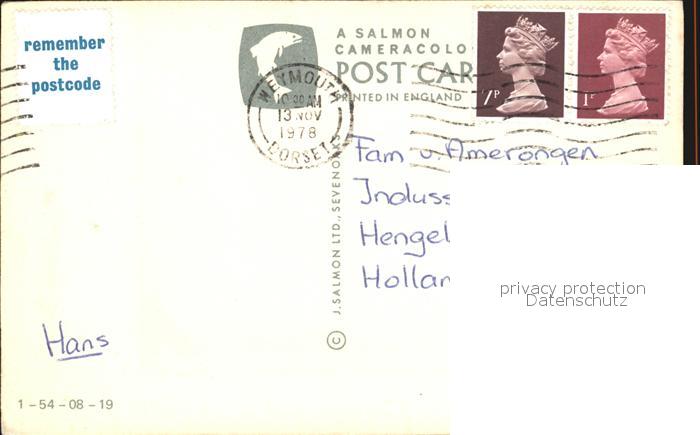 remember
the
postcode
A SALMON
CAMERACOLO
POST CAR
PRINTED IN ENGLAND
7P
1P
WEYMOUTH
10 30 AM
13 NOV
1978
DORSET
Fam v. Amerongen
Induss
Hengel
Hollan
© J. SALMON LTD., SEVENO
privacy protection
Datenschutz
Hans
1-54-08-19